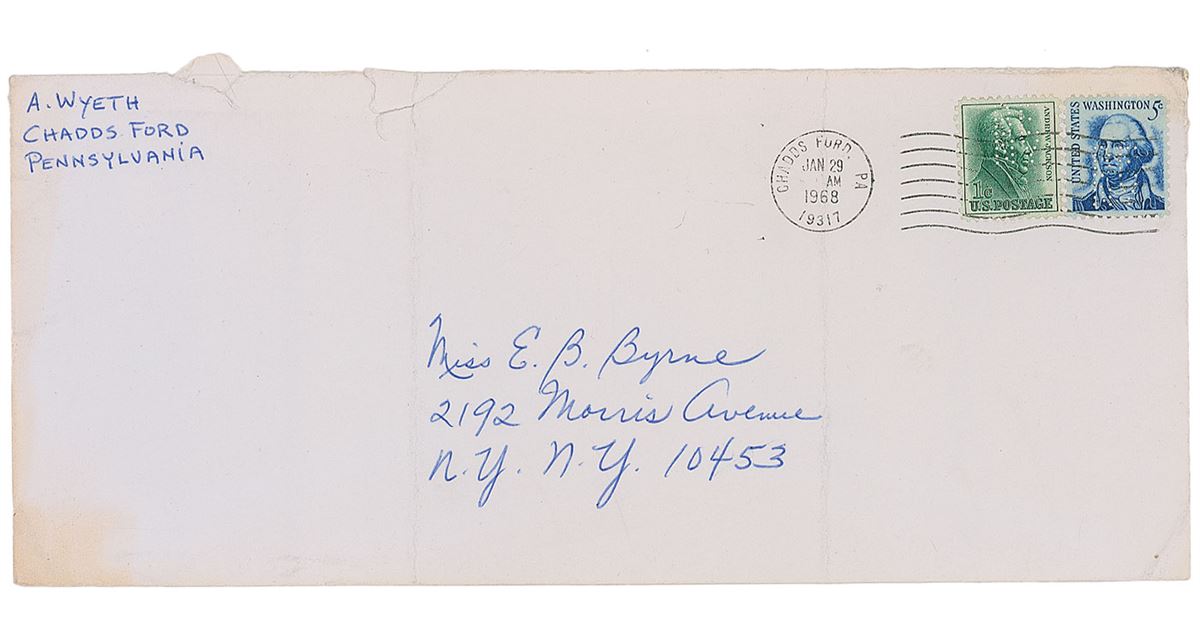 A. WYETH
CHADDS FORD
PENNSYLVANIA
CHADDS FORD, PA
JAN 29
AM
1968
19317
ANDREW JACKSON
1c
U.S. POSTAGE
UNITED STATES
WASHINGTON 5c
Miss E. B. Byrne
2192 Morris Avenue
N.Y. N.Y. 10453